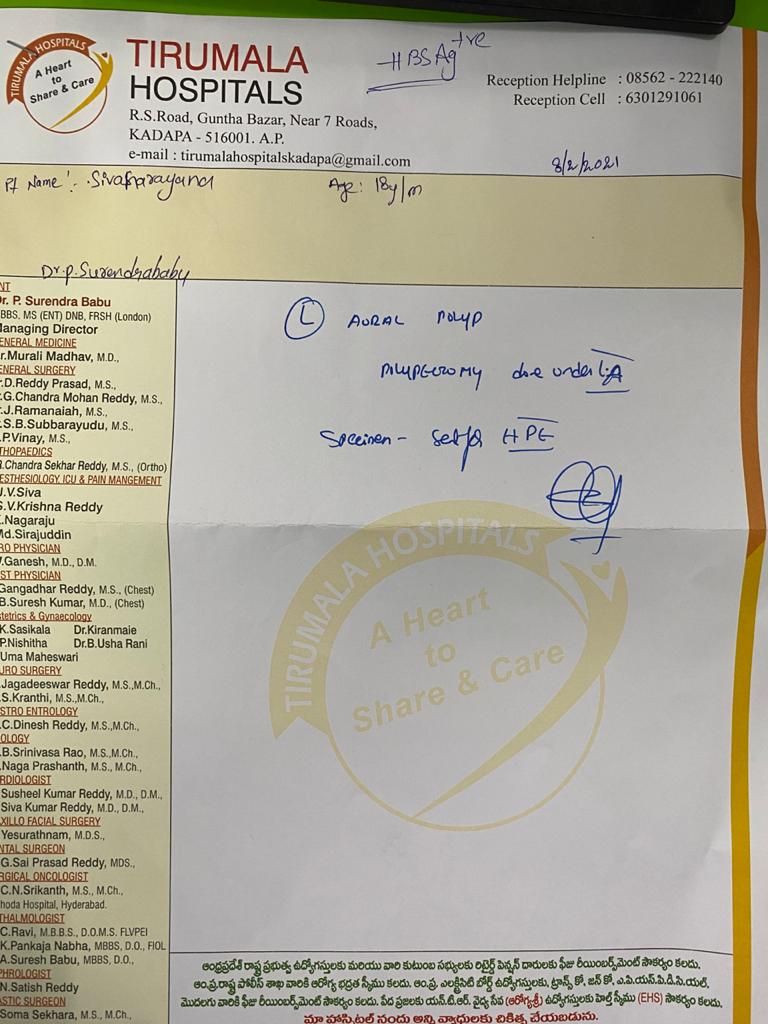 TIRUMALA HOSPITALS
A Heart
to
Share & Care
TIRUMALA
HOSPITALS
R.S.Road, Guntha Bazar, Near 7 Roads,
KADAPA - 516001. A.P.
e-mail : tirumalahospitalskadapa@gmail.com
HBSAg +ve
Reception Helpline : 08562 - 222140
Reception Cell : 6301291061
8/2/2021
Pt Name :- Sivanarayana Age: 18y/m
Dr.P.Surendrababu
NT
r. P. Surendra Babu
BBS, MS (ENT) DNB, FRSH (London)
anaging Director
ENERAL MEDICINE
r.Murali Madhav, M.D.,
ENERAL SURGERY
r.D.Reddy Prasad, M.S.,
r.G.Chandra Mohan Reddy, M.S.,
r.J.Ramanaiah, M.S.,
r.S.B.Subbarayudu, M.S.,
.P.Vinay, M.S.,
THOPAEDICS
.Chandra Sekhar Reddy, M.S., (Ortho)
ESTHESIOLOGY, ICU & PAIN MANGEMENT
.V.Siva
S.V.Krishna Reddy
.Nagaraju
d.Sirajuddin
RO PHYSICIAN
.Ganesh, M.D., D.M.
ST PHYSICIAN
Gangadhar Reddy, M.S., (Chest)
B.Suresh Kumar, M.D., (Chest)
tetrics & Gynaecology
K.Sasikala Dr.Kiranmaie
P.Nishitha Dr.B.Usha Rani
Uma Maheswari
URO SURGERY
Jagadeeswar Reddy, M.S.,M.Ch.,
S.Kranthi, M.S.,M.Ch.,
STRO ENTROLOGY
.C.Dinesh Reddy, M.S.,M.Ch.,
OLOGY
.B.Srinivasa Rao, M.S.,M.Ch.,
.Naga Prashanth, M.S., M.Ch.,
RDIOLOGIST
Susheel Kumar Reddy, M.D., D.M.,
Siva Kumar Reddy, M.D., D.M.,
XILLO FACIAL SURGERY
Yesurathnam, M.D.S.,
NTAL SURGEON
G.Sai Prasad Reddy, MDS.,
RGICAL ONCOLOGIST
C.N.Srikanth, M.S., M.Ch.,
hoda Hospital, Hyderabad.
THALMOLOGIST
C.Ravi, M.B.B.S., D.O.M.S. FLVPEI
K.Pankaja Nabha, MBBS, D.O., FIOL
A.Suresh Babu, MBBS, D.O.,
PHROLOGIST
N.Satish Reddy
ASTIC SURGEON
Soma Sekhara, M.S., M.Ch.,
(L) AURAL POLYP
POLYPECTOMY done under LA
Specimen - sent for HPE
TIRUMALA HOSPITALS
A Heart
to
Share & Care
ఆంధ్రప్రదేశ్ రాష్ట్ర ప్రభుత్వ ఉద్యోగస్తులకు మరియు వారి కుటుంబ సభ్యులకు రిటైర్డ్ పెన్షన్ దారులకు ఫీజు రీయింబర్స్‌మెంట్ సౌకర్యం కలదు.
ఆం.ప్ర.రాష్ట్ర పోలీస్ శాఖ వారికి ఆరోగ్య భద్రత స్కీము కలదు. ఆం.ప్ర. ఎలక్ట్రిసిటి బోర్డ్ ఉద్యోగస్తులకు, ట్రాన్స్ కో, జెన్ కో, ఎ.పి.యస్.పి.డి.సి.యల్.
మొదలగు వారికి ఫీజు రీయింబర్స్‌మెంట్ సౌకర్యం కలదు. పేద ప్రజలకు యన్.టి.ఆర్. వైద్య సేవ (ఆరోగ్యశ్రీ) ఉద్యోగస్తులకు హెల్త్ స్కీము (EHS) సౌకర్యం కలదు.
మా హాస్పిటల్ నందు అన్ని వ్యాధులకు చికిత్స చేయబడును.